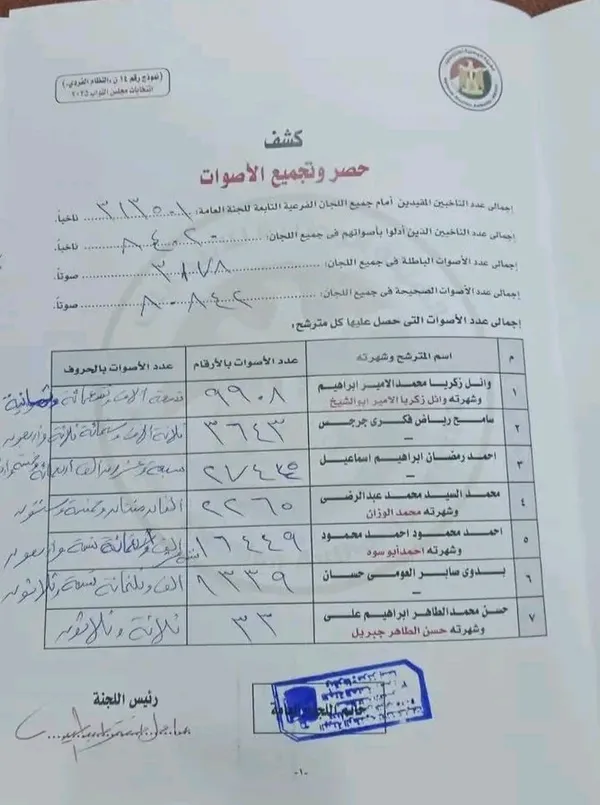 (نموذج رقم ١٤ ن.، النظام الفردي،)
انتخابات مجلس النواب ٢٠٢٥
كشف
حصر وتجميع الأصوات
إجمالى عدد الناخبين المقيدين أمام جميع اللجان الفرعية التابعة للجنة العامة: ٣١٣٥٠١ ناخباً.
إجمالى عدد الناخبين الذين أدلوا بأصواتهم فى جميع اللجان: ٨٤٠٢٠ ناخباً.
إجمالى عدد الأصوات الباطلة فى جميع اللجان: ٣١٧٨ صوتاً.
إجمالى عدد الأصوات الصحيحة فى جميع اللجان: ٨٠٨٤٢ صوتاً.
إجمالى عدد الأصوات التى حصل عليها كل مترشح:
م اسم المترشح وشهرته عدد الأصوات بالأرقام عدد الأصوات بالحروف
١ وائل زكريا محمد الامير ابراهيم وشهرته وائل زكريا الامير ابوالشيخ ٩٩٠٨ تسعة آلاف وتسعمائة وثمانية
٢ سامح رياض فكرى جرجس – ٣٦٤٣ ثلاثة آلاف وستمائة ثلاثة واربعون
٣ احمد رمضان ابراهيم اسماعيل – سبعة وعشرون الف اربعمائة
٤ محمد السيد محمد عبدالرضى وشهرته محمد الوزان ٢٢٦٥ الفان مئتان وخمسة وستون
٥ احمد محمود احمد محمود وشهرته احمدابوسوه ١٦٤٤٩ الف واربعمائة تسعة واربعون
٦ بدوى صابر العومى حسان – ١٣٣٩ الف وثلثمائة تسعة وثلاثون
٧ حسن محمد الطاهر ابراهيم على وشهرته حسن الطاهر جبريل ٣٣ ثلاثة وثلاثون
خاتم اللجنة العامة
رئيس اللجنة
-١-